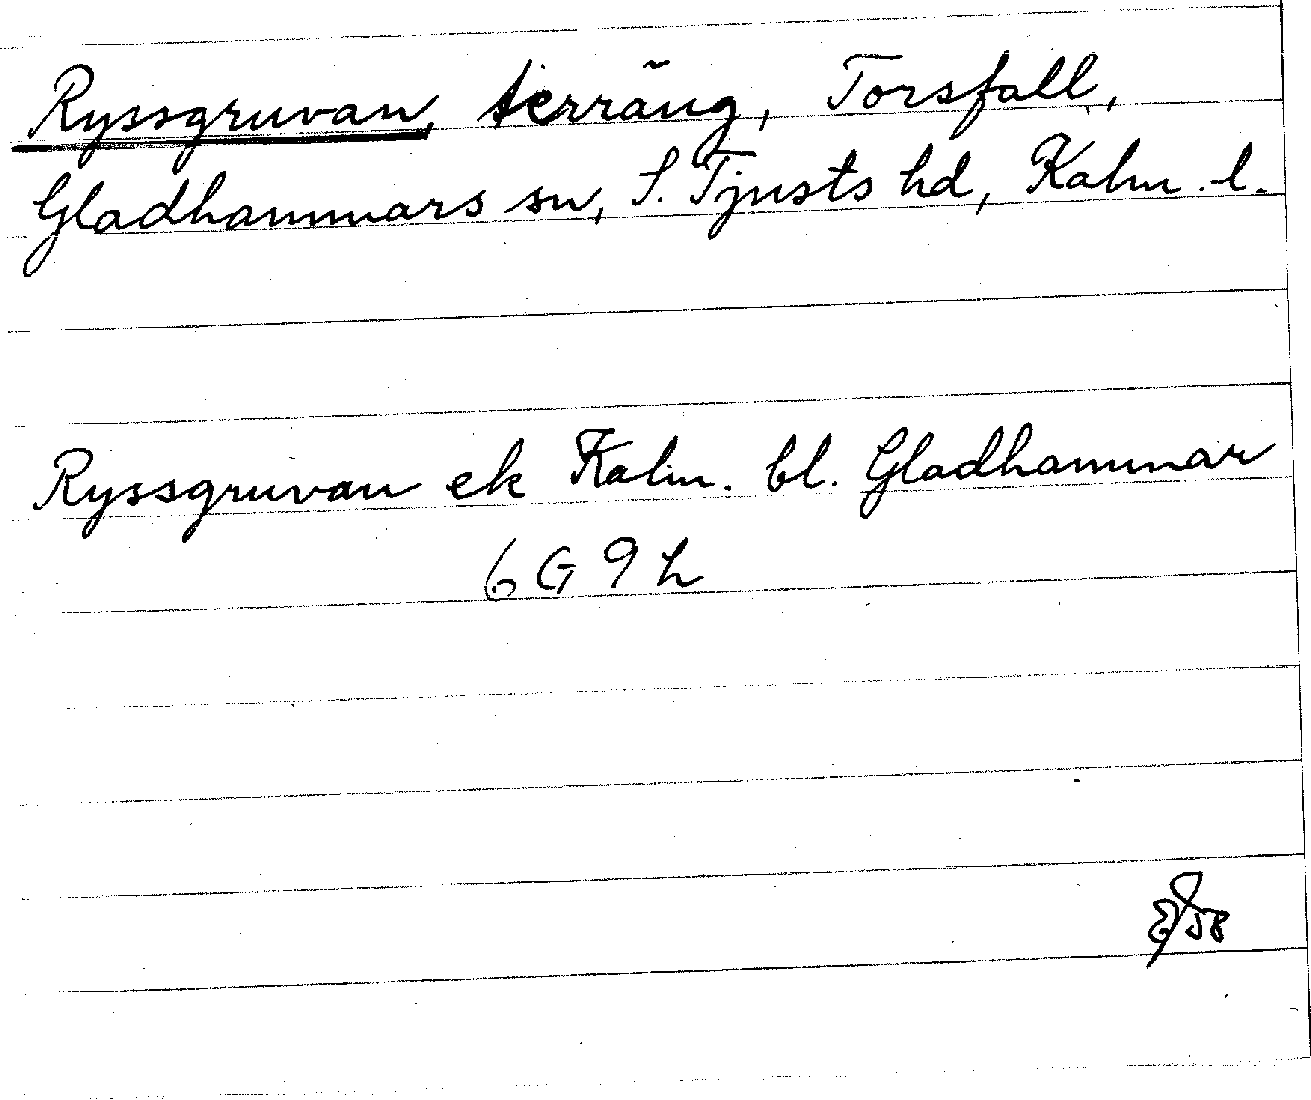 Ryssgruvan, terräng, Torsfall,
Gladhammars sn, S. Tjusts hd, Kalm. l.
Ryssgruvan ek Kalm. bl. Gladhammar
6 G 9 h